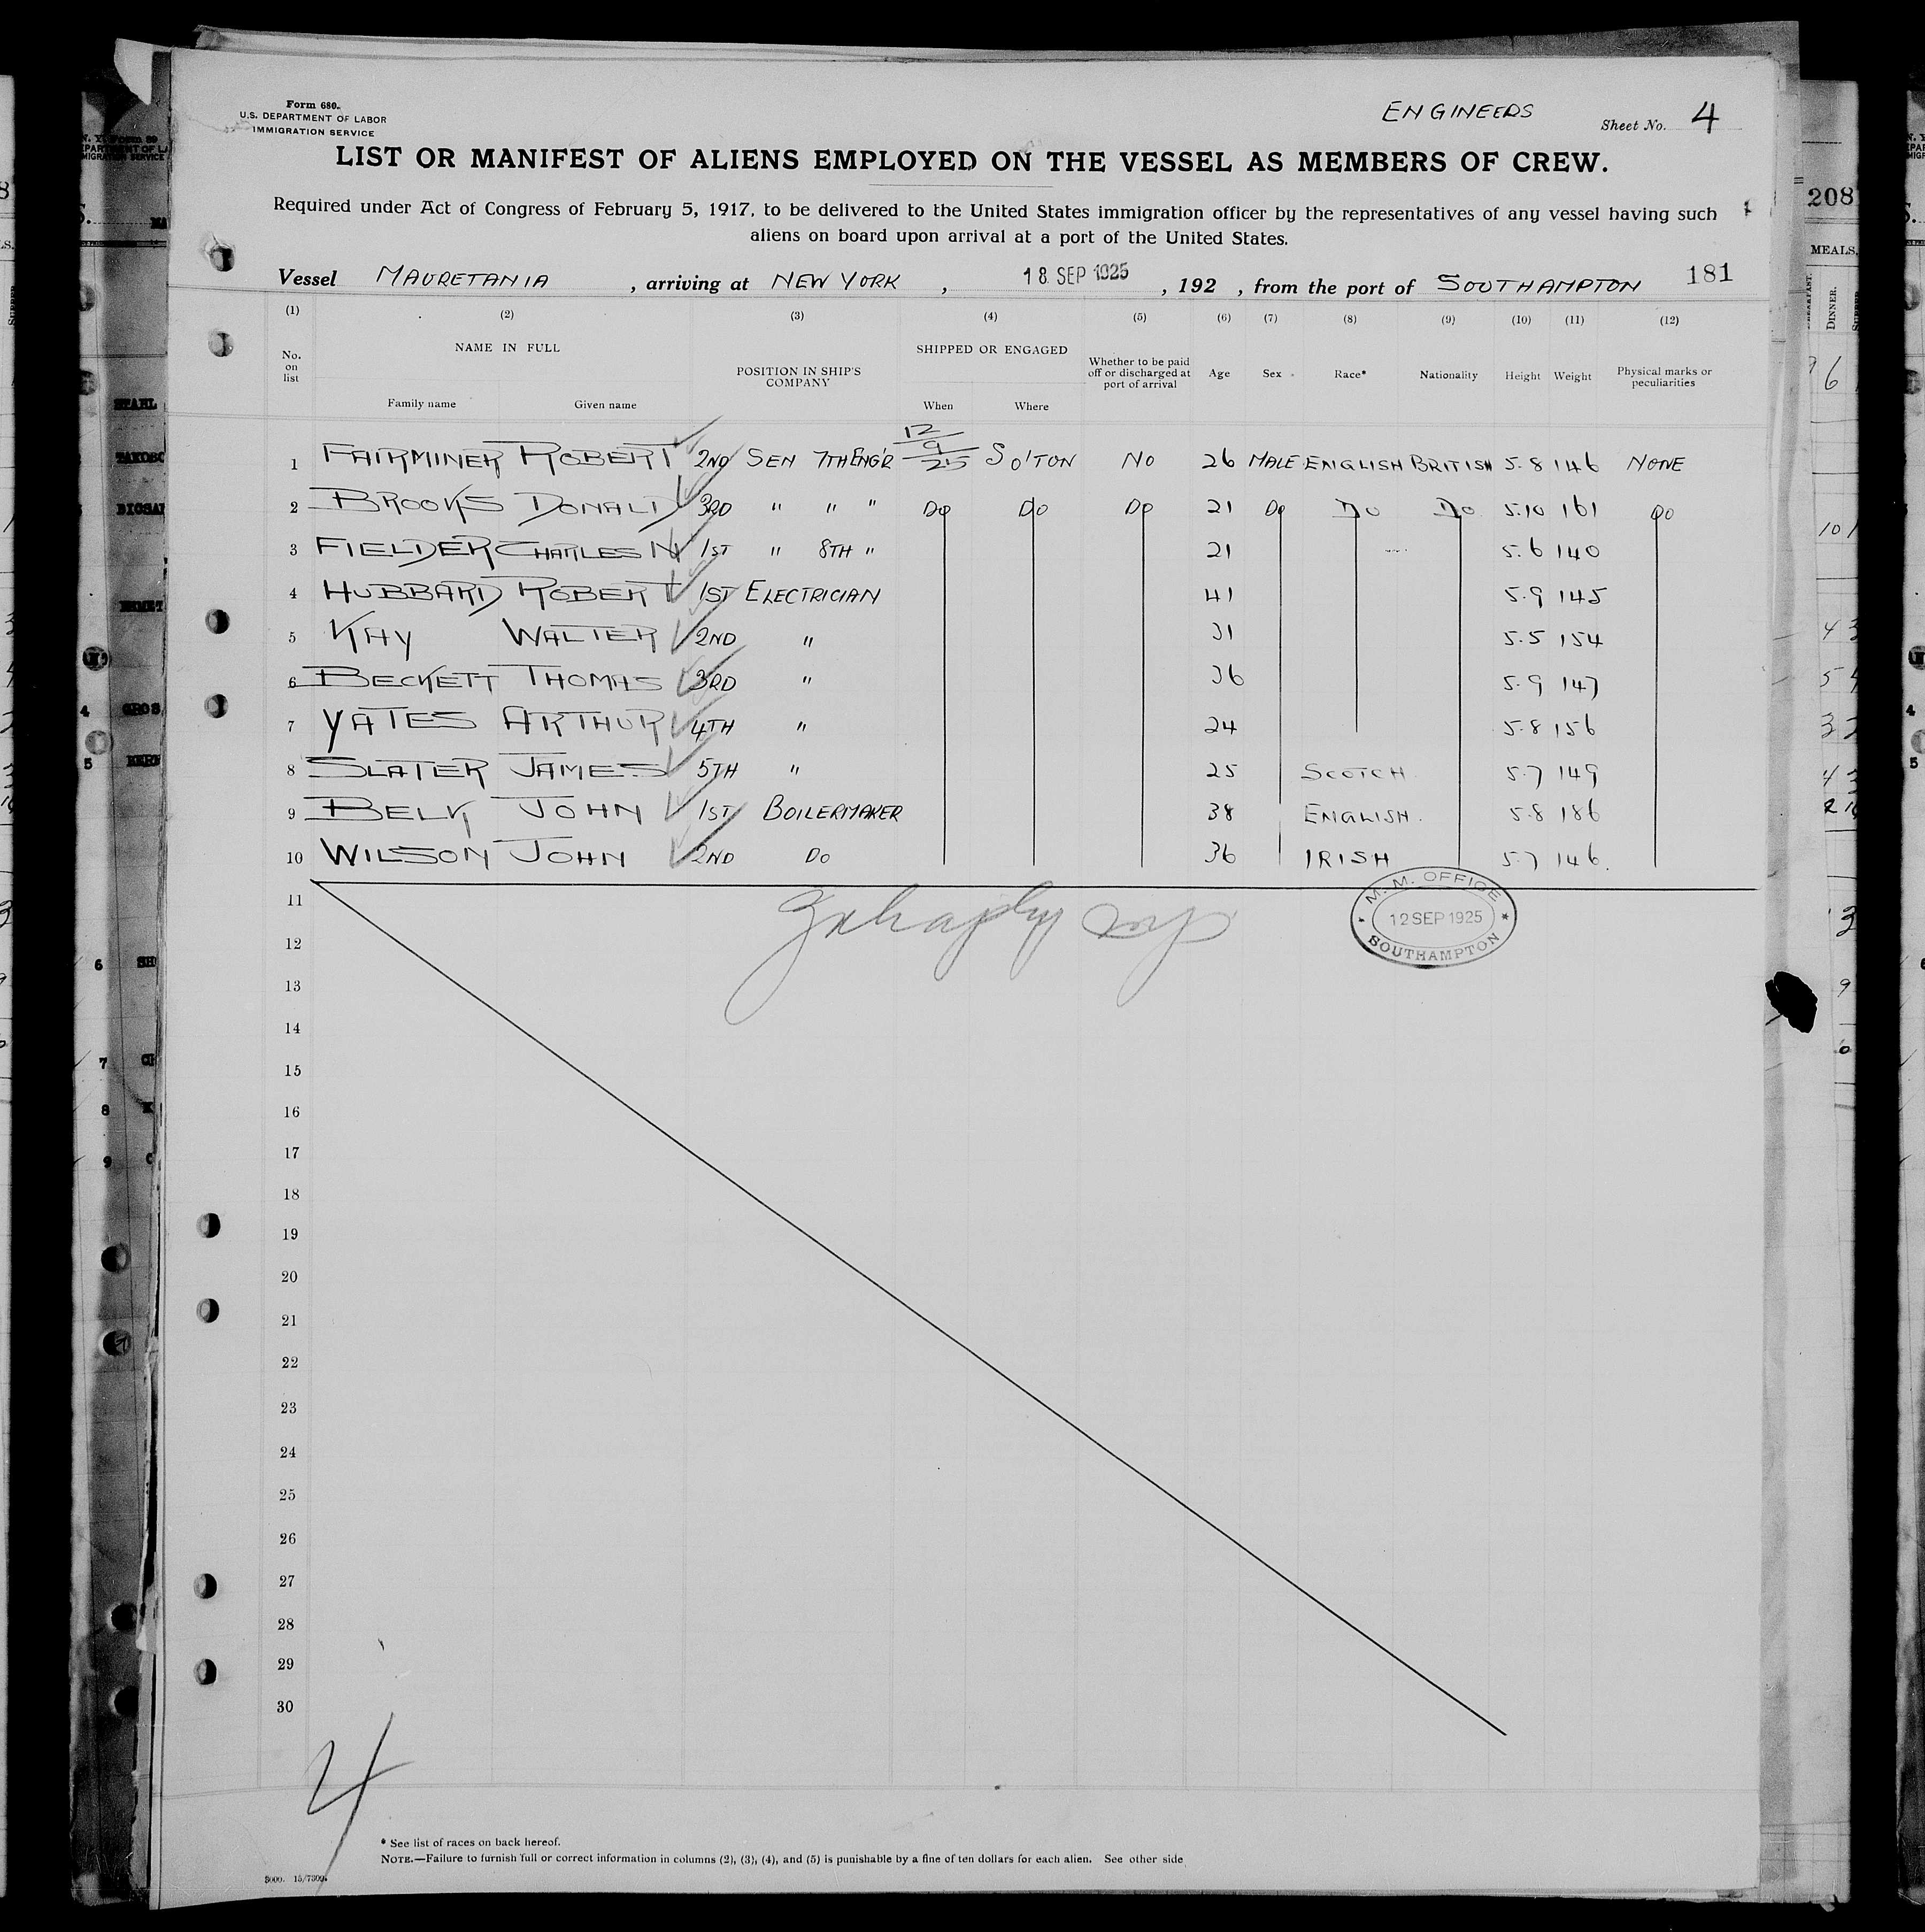 Form 680.
U.S. DEPARTMENT OF LABOR
IMMIGRATION SERVICE
ENGINEERS
Sheet No. 4
LIST OR MANIFEST OF ALIENS EMPLOYED ON THE VESSEL AS MEMBERS OF CREW.
Required under Act of Congress of February 5, 1917, to be delivered to the United States immigration officer by the representatives of any vessel having such
aliens on board upon arrival at a port of the United States.
Vessel MAURETANIA , arriving at NEW YORK , 18 SEP 1925 , 192 , from the port of SOUTHAMPTON 181
(1) (2) (3) (4) (5) (6) (7) (8) (9) (10) (11) (12)
No. on list NAME IN FULL Family name Given name POSITION IN SHIP'S COMPANY SHIPPED OR ENGAGED When Where Whether to be paid off or discharged at port of arrival Age Sex Race* Nationality Height Weight Physical marks or peculiarities
1 FAIRMINER ROBERT 2ND SEN 7TH ENG'R 12/9/25 SO'TON NO 26 MALE ENGLISH BRITISH 5.8 146 NONE
2 BROOKS DONALD 3RD " " " DO DO DO 21 DO DO DO 5.10 161 DO
3 FIELDER CHARLES N 1ST " 8TH " 21 5.6 140
4 HUBBARD ROBERT 1ST ELECTRICIAN 41 5.9 145
5 KAY WALTER 2ND " 31 5.5 154
6 BECKETT THOMAS 3RD " 36 5.9 147
7 YATES ARTHUR 4TH " 24 5.8 156
8 SLATER JAMES 5TH " 25 SCOTCH 5.7 149
9 BELK JOHN 1ST BOILERMAKER 38 ENGLISH. 5.8 186
10 WILSON JOHN 2ND DO 36 IRISH 5.7 146.
11
12
13
14
15
16
17
18
19
20
21
22
23
24
25
26
27
28
29
30
M. M. OFFICE
12 SEP 1925
SOUTHAMPTON
4
* See list of races on back hereof.
NOTE.—Failure to furnish full or correct information in columns (2), (3), (4), and (5) is punishable by a fine of ten dollars for each alien. See other side
208
MEALS,
DINNER.